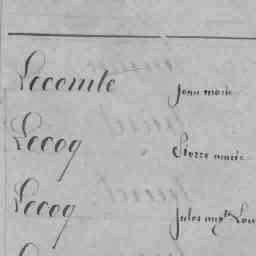 Lecomte Jean marie
Lecoq Pierre marie
Lecoq Jules